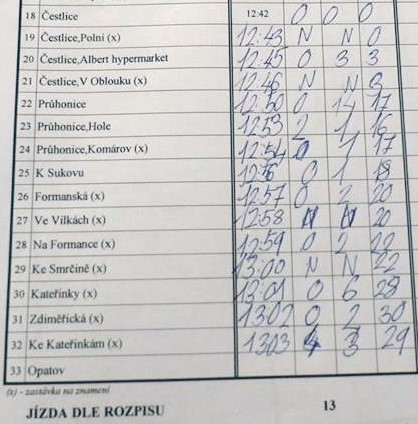 18 Čestlice 12:42 0 0 0
19 Čestlice,Polní (x) 12:43 N N 0
20 Čestlice,Albert hypermarket 12:45 0 3 3
21 Čestlice,V Oblouku (x) 12:46 N N 3
22 Průhonice 12:50 0 14 17
23 Průhonice,Hole 12:53 2 1 16
24 Průhonice,Komárov (x) 12:54 0 1 17
25 K Sukovu 12:56 0 1 18
26 Formanská (x) 12:57 0 2 20
27 Ve Vilkách (x) 12:58 N N 20
28 Na Formance (x) 12:59 0 2 22
29 Ke Smrčině (x) 13:00 N N 22
30 Kateřinky (x) 13:01 0 6 28
31 Zdiměřická (x) 13:02 0 2 30
32 Ke Kateřinkám (x) 13:03 4 3 29
33 Opatov
(x) - zastávka na znamení
JÍZDA DLE ROZPISU 13